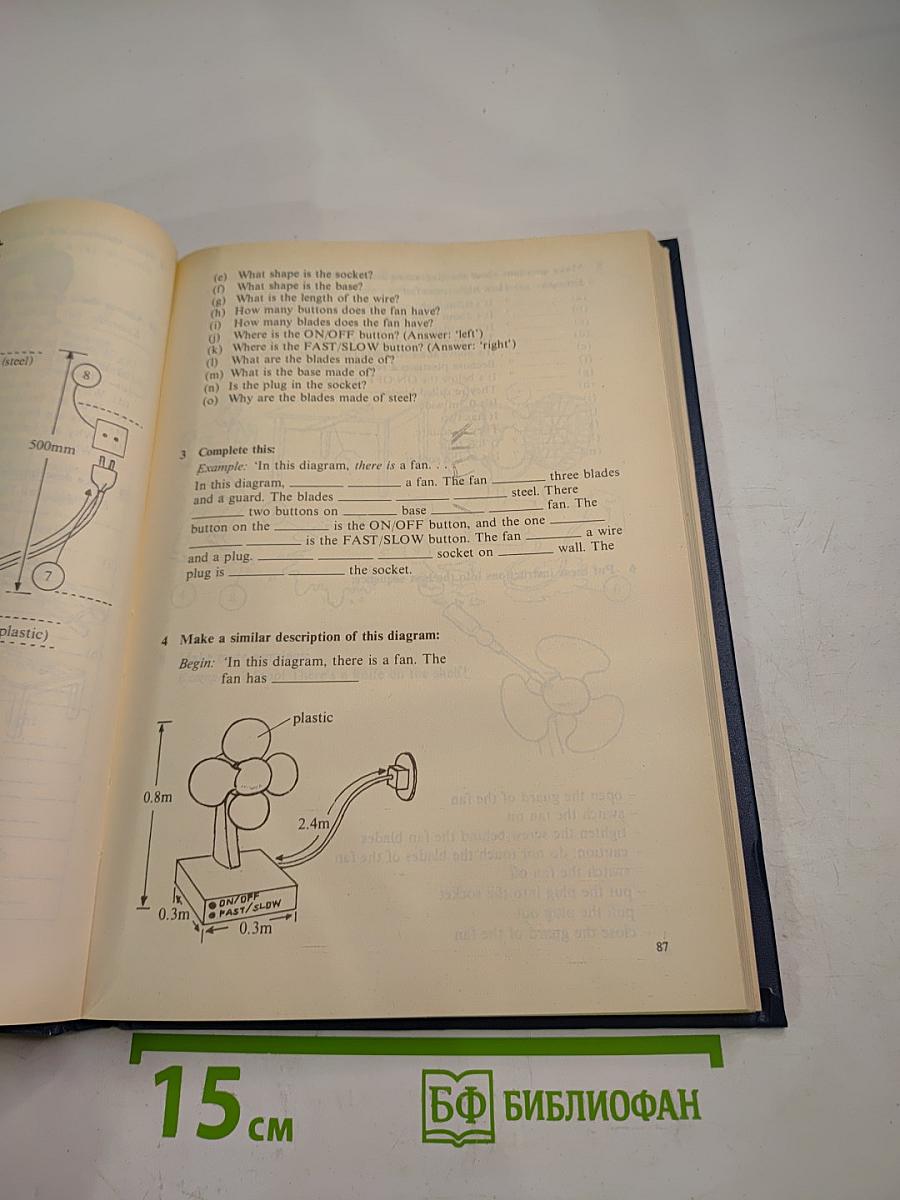 (steel)
8
500mm
7
plastic)
(e) What shape is the socket?
(f) What shape is the base?
(g) What is the length of the wire?
(h) How many buttons does the fan have?
(i) How many blades does the fan have?
(j) Where is the ON/OFF button? (Answer: 'left')
(k) Where is the FAST/SLOW button? (Answer: 'right')
(l) What are the blades made of?
(m) What is the base made of?
(n) Is the plug in the socket?
(o) Why are the blades made of steel?
3 Complete this:
Example: 'In this diagram, there is a fan. . .
In this diagram, ________ ________ a fan. The fan ________ three blades
and a guard. The blades ________ ________ ________ steel. There
________ two buttons on ________ base ________ ________ fan. The
button on the ________ is the ON/OFF button, and the one ________
________ ________ is the FAST/SLOW button. The fan ________ a wire
and a plug. ________ ________ ________ socket on ________ wall. The
plug is ________ ________ the socket.
4 Make a similar description of this diagram:
Begin: 'In this diagram, there is a fan. The
fan has ________
plastic
0.8m
2.4m
ON/OFF
FAST/SLOW
0.3m
0.3m
87
15 см
БФ БИБЛИОФАН